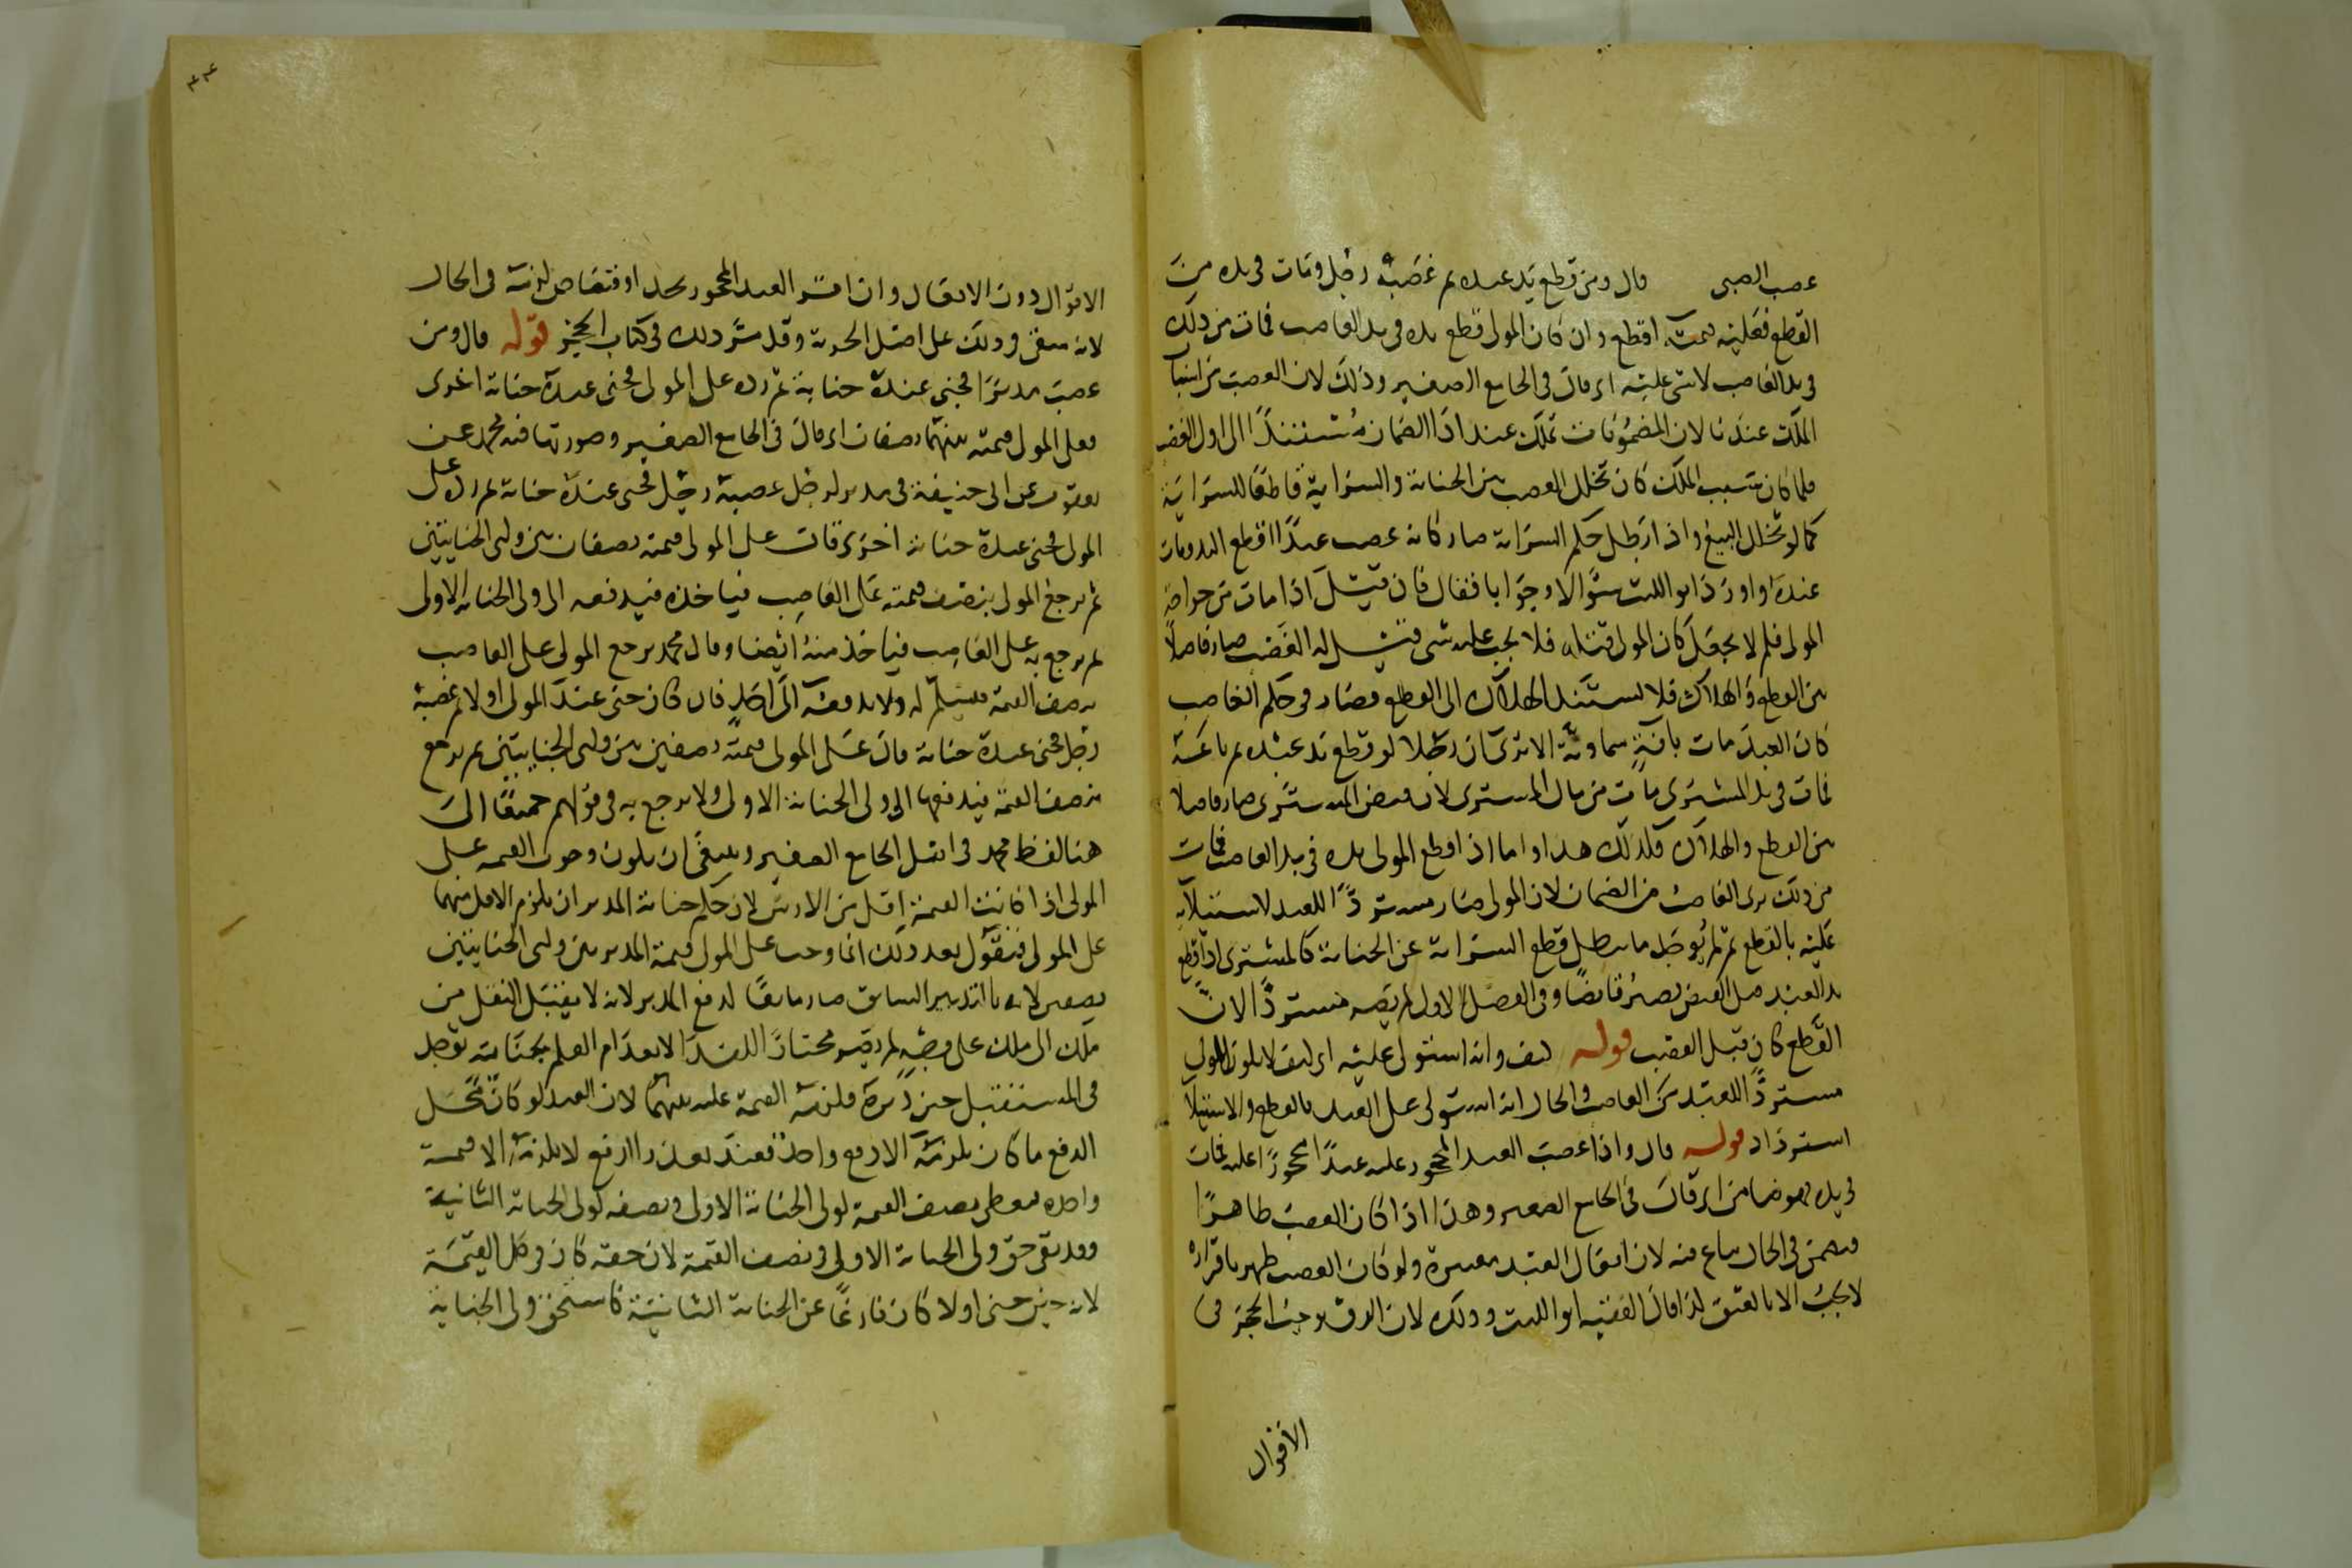 غصب الصبى قال ومن قطع يد عبده ثم غصبه رجل ومات فى يده من
القطع فعليه قيمته اقطع وان كان المولى قطع يده فى يد الغاصب فمات من ذلك
فى يد الغاصب لا شى عليه اى قال فى الجامع الصغير وذلك لان الغصب من اسباب
الملك عندنا لان المضمونات تملك عند ادا الضمان مستندا الى اول الغصب
فلما كان سبب الملك كان تخلل الغصب بين الجناية والسراية قاطعا للسراية
كما لو تخلل البيع واذا بطل حكم السراية صار كانه غصب عبدا اقطع اليد ومات
عنده واورد ابو الليث سوالا وجوابا فقال فان قيل اذا مات من جراحة
المولى فلم لا يجعل كان المولى قتله فلا يجب عليه شى قيل له الغصب صار فاصلا
بين القطع والهلاك فلا يستند الهلاك الى القطع فصار فى حكم الغاصب
كان العبد مات بافة سماوية الا ترى ان رجلا لو قطع يد عبده ثم باعه
فمات فى يد المشترى مات من مال المشترى لان قبض المشترى صار فاصلا
بين القطع والهلاك فكذلك هذا واما اذا قطع المولى يده فى يد الغاصب فمات
من ذلك برى الغاصب من الضمان لان المولى صار مستردا للعبد لاستيلائه
عليه بالقطع ثم لم يوجد ما يبطل قطع السراية عن الجناية كالمشترى اذا قطع
يد العبد قبل القبض يصير قابضا وفى الفصل الاول لم يصر مستردا لان
القطع كان قبل الغصب قوله كيف وانه استولى عليه اى كيف لا يكون المولى
مستردا للعبد من الغاصب والحال انه استولى على العبد بالقطع والاستيلا
استرداد قوله قال واذا غصب العبد المحجور عليه عبدا محجورا عليه فمات
فى يده فهو ضامن اى قال فى الجامع الصغير وهذا اذا كان الغصب ظاهرا
فيضمن فى الحال يباع فيه لان افعال العبد معتبرة ولو كان الغصب ظهر باقراره
لا يجب الا بالعتق كذا قال الفقيه ابو الليث وذلك لان الرق يوجب الحجر فى
الاقوال
٣٤
الاقوال دون الافعال وان اقر العبد المحجور بحد او قصاص لزمه فى الحال
لانه مبقى فى ذلك على اصل الحرية وقد مر ذلك فى كتاب الحجر قوله قال ومن
غصب مدبرا فجنى عنده جناية ثم رده على المولى فجنى عنده جناية اخرى
فعلى المولى قيمته بينهما نصفان اى قال فى الجامع الصغير وصورتها فيه محمد عن
يعقوب عن ابى حنيفة فى مدبر لرجل غصبه رجل فجنى عنده جناية ثم رده على
المولى فجنى عنده جناية اخرى قال على المولى قيمته نصفان بين ولى الجنايتين
ثم يرجع المولى بنصف قيمته على الغاصب فياخذه فيدفعه الى ولى الجناية الاولى
ثم يرجع به على الغاصب فياخذ منه ايضا وقال محمد يرجع المولى على الغاصب
بنصف القيمة فيسلم له ولا يدفعه الى احد فان كان جنى عند المولى اولا ثم غصبه
رجل فجنى عنده جناية قال على المولى قيمته نصفين بين ولى الجنايتين ثم يرجع
بنصف القيمة فيدفعها الى ولى الجناية الاولى ولا يرجع به فى قولهم جميعا الى
هنا لفظ محمد فى اصل الجامع الصغير وينبغى ان يكون وجوب القيمة على
المولى اذا كانت القيمة اقل من الارش لان حكم جناية المدبر ان يلزم الاقل منهما
على المولى فنقول بعد ذلك انما وجب على المولى قيمة المدبر بين ولى الجنايتين
نصفين لانه بالتدبير السابق صار مانعا لدفع المدبر لانه لا يقبل النقل من
ملك الى ملك على وجه لم يصر مختارا للفدا لانعدام العلم بجناية توجد
فى المستقبل حين دبره فلزمه القيمة عليه بينهما لان العبد لو كان محل
الدفع ما كان يلزمه الا دفع واحد فعند تعذر الدفع لا يلزمه الا قيمة
واحده فيعطى نصف القيمة لولى الجناية الاولى ونصفه لولى الجناية الثانية
وقد بقى حق ولى الجناية الاولى فى نصف القيمة لان حقه كان فى كل القيمة
لانه حين جنى اولا كان فارغا عن الجناية الثانية فاستحق ولى الجناية